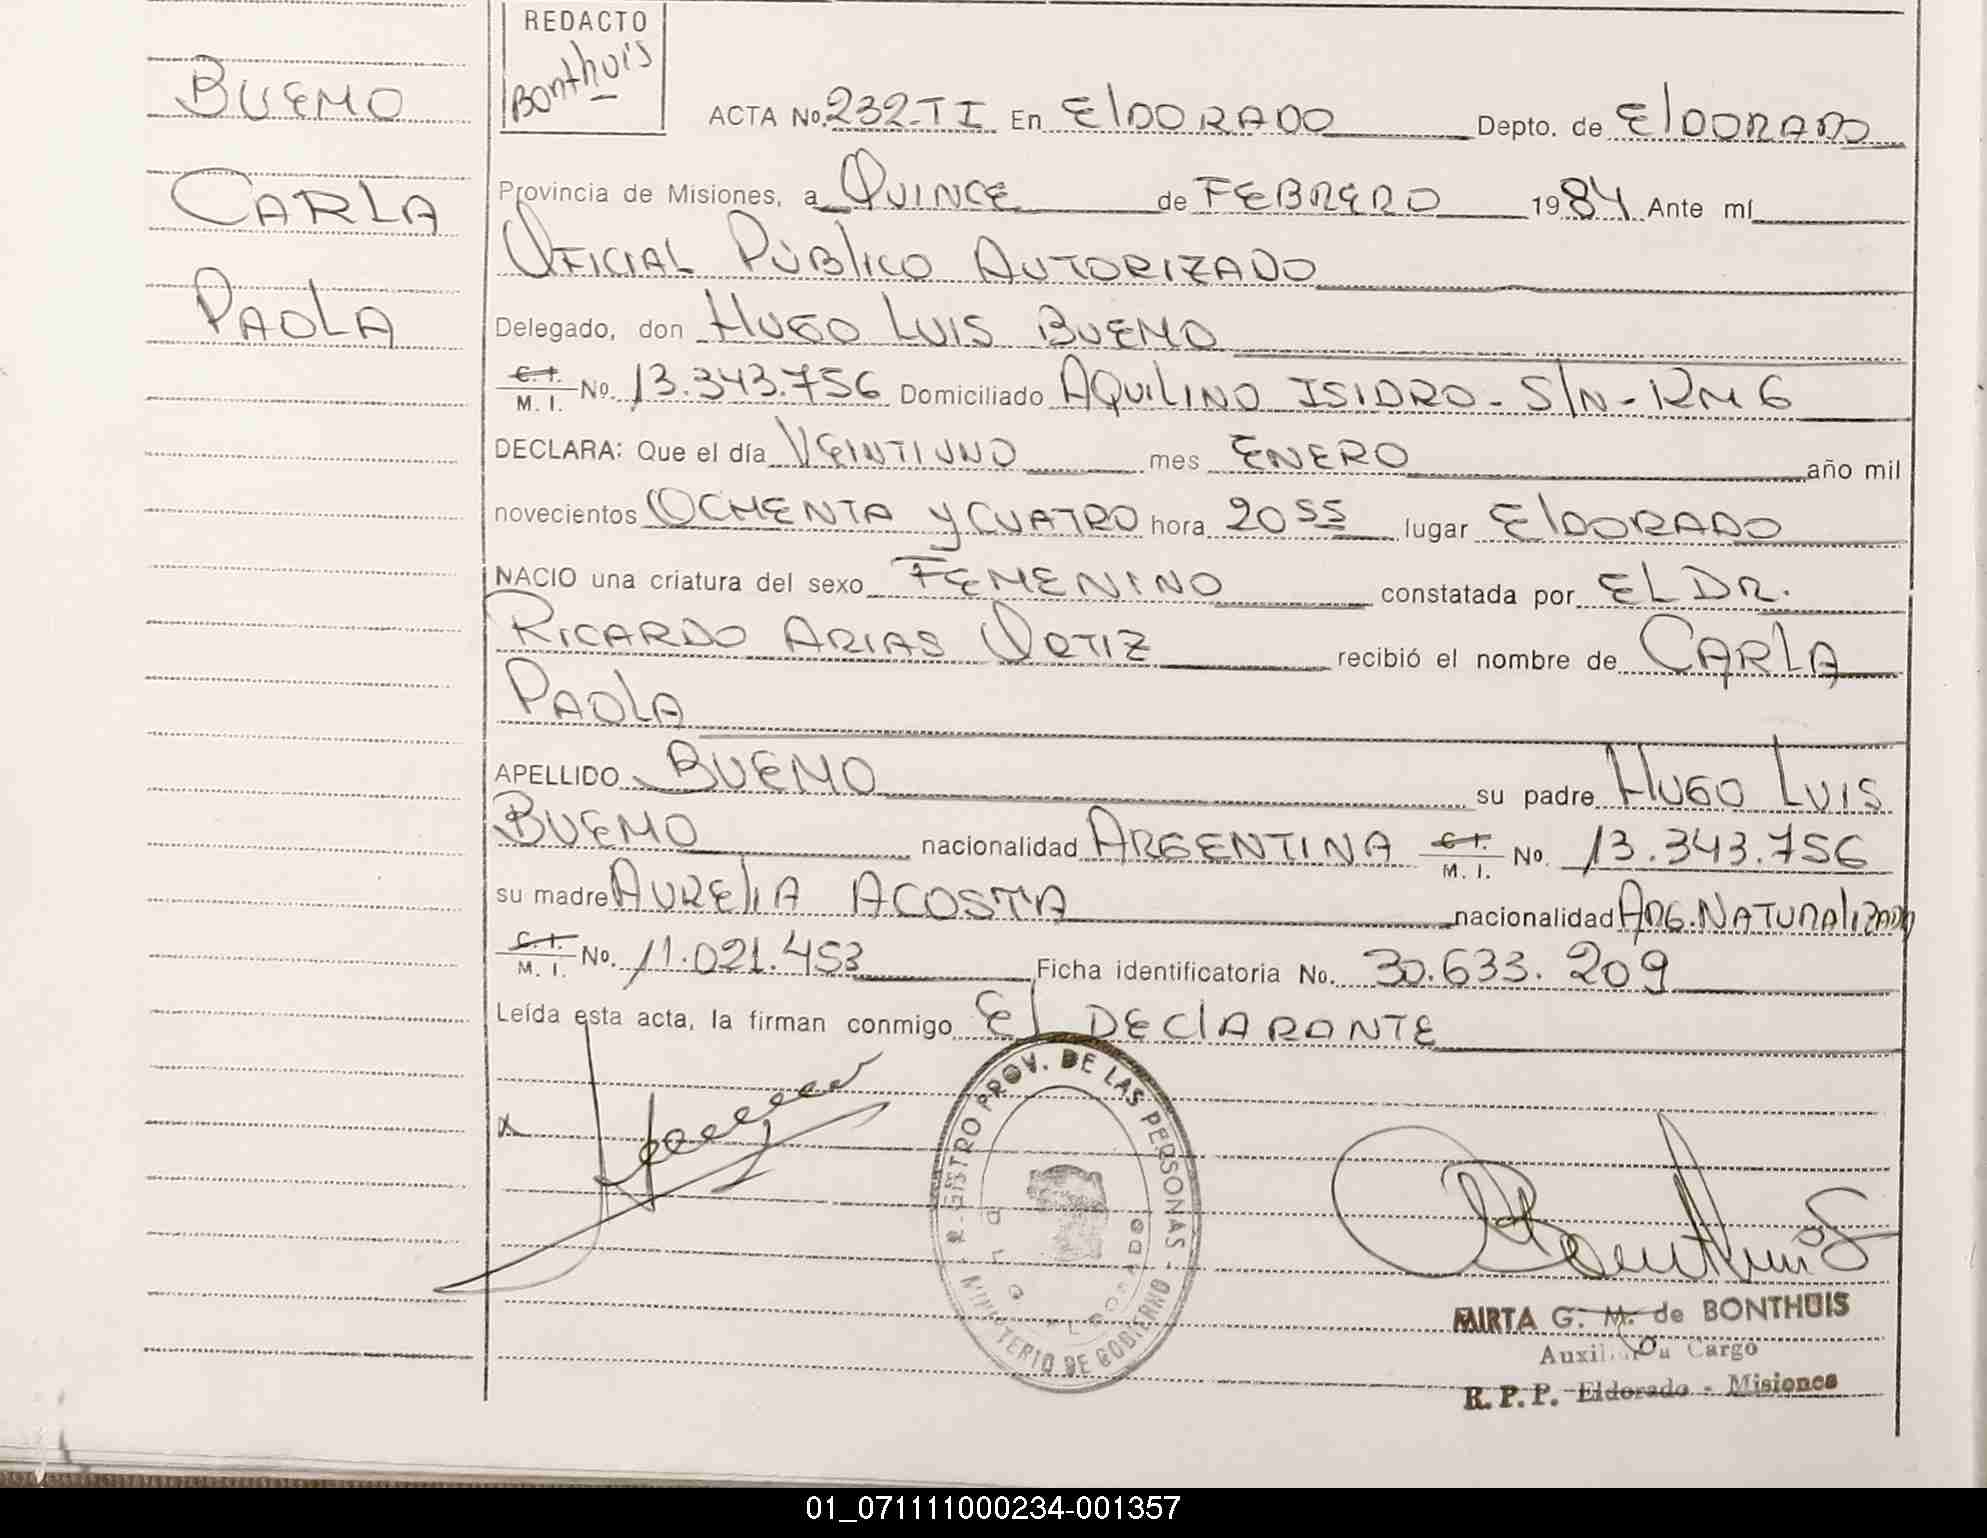 REDACTO
Bonthuis
BUEMO
CARLA
PAOLA
ACTA No. 232-TI En ElDORADO Depto. de ElDORADO
Provincia de Misiones, a QUINCE de FEBRERO 1984 Ante mí
OFICIAL PÚBlICO AUTORIZADO
Delegado, don HUGO LUIS BUEMO
C.I. M. I. No. 13.343.756 Domiciliado AQUILINO ISIDRO - S/N - KM 6
DECLARA: Que el día VEINTIUNO mes ENERO año mil
novecientos OCHENTA y CUATRO hora 20 55 lugar ElDORADO
NACIO una criatura del sexo FEMENINO constatada por EL DR.
RICARDO ARIAS ORTIZ recibió el nombre de CARLA
PAOLA
APELLIDO BUEMO su padre HUGO LUIS
BUEMO nacionalidad ARGENTINA C.I. M. I. No. 13.343.756
su madre AURElIA ACOSTA nacionalidad ARG. NATURAlIZADA
C.I. M. I. No. 11.021.453 Ficha identificatoria No. 30.633.209
Leída esta acta, la firman conmigo El DEClARANTE
x
REGISTRO PROV. DE LAS PERSONAS - MINISTERIO DE GOBIERNO
Bonthuis
MIRTA G. M. de BONTHUIS
Auxiliar a Cargo
R. P. P. Eldorado - Misiones
01_071111000234-001357